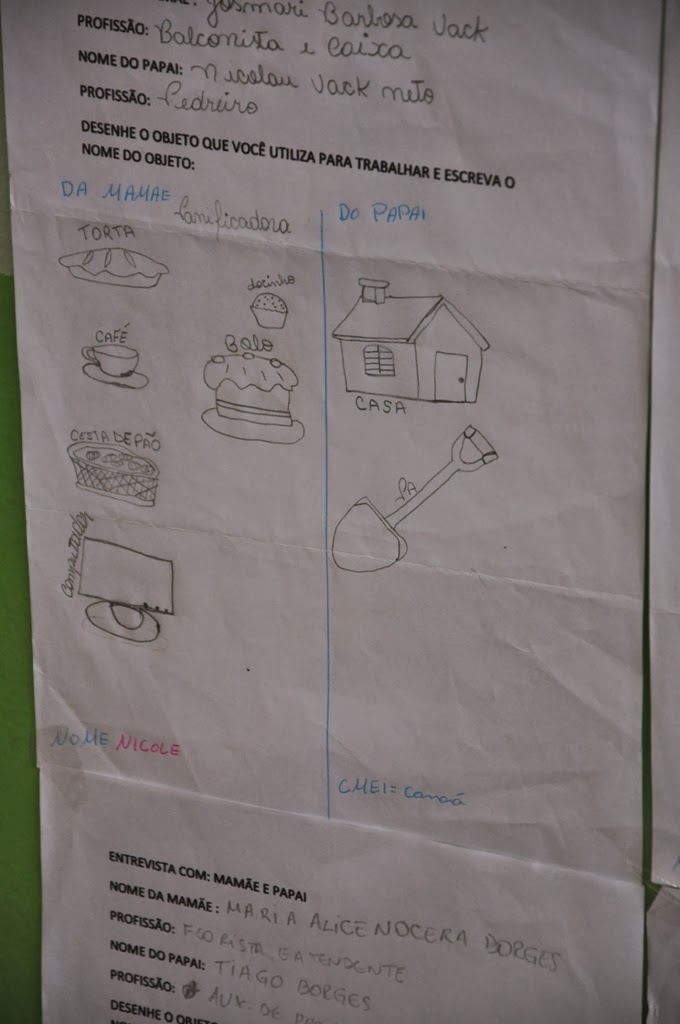 Josmari Barbosa Jack
PROFISSÃO: Balconista e Caixa
NOME DO PAPAI: Nicolau Jack neto
PROFISSÃO: Pedreiro
DESENHE O OBJETO QUE VOCÊ UTILIZA PARA TRABALHAR E ESCREVA O
NOME DO OBJETO:
DA MAMAE Panificadora
TORTA
docinho
CAFÉ
BOLO
CESTA DE PÃO
computador
DO PAPAI
CASA
PA
NOME NICOLE
CMEI = Canaã
ENTREVISTA COM: MAMÃE E PAPAI
NOME DA MAMÃE: MARIA ALICE NOCERA BORGES
PROFISSÃO: FLORISTA E ATENDENTE
NOME DO PAPAI: TIAGO BORGES
PROFISSÃO: AUX. DE
DESENHE O OBJETO